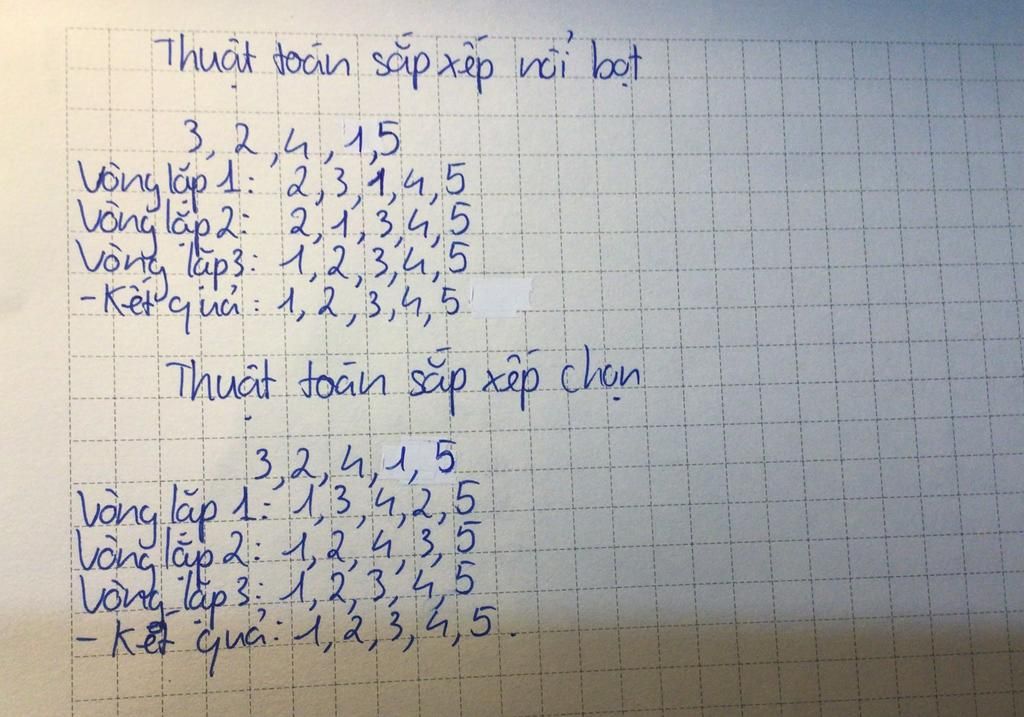 Thuật toán sắp xếp nổi bọt
3, 2, 4, 1, 5
Vòng lặp 1: 2, 3, 1, 4, 5
Vòng lặp 2: 2, 1, 3, 4, 5
Vòng lặp 3: 1, 2, 3, 4, 5
- Kết quả: 1, 2, 3, 4, 5
Thuật toán sắp xếp chọn
3, 2, 4, 1, 5
Vòng lặp 1: 1, 3, 4, 2, 5
Vòng lặp 2: 1, 2, 4, 3, 5
Vòng lặp 3: 1, 2, 3, 4, 5
- Kết quả: 1, 2, 3, 4, 5.